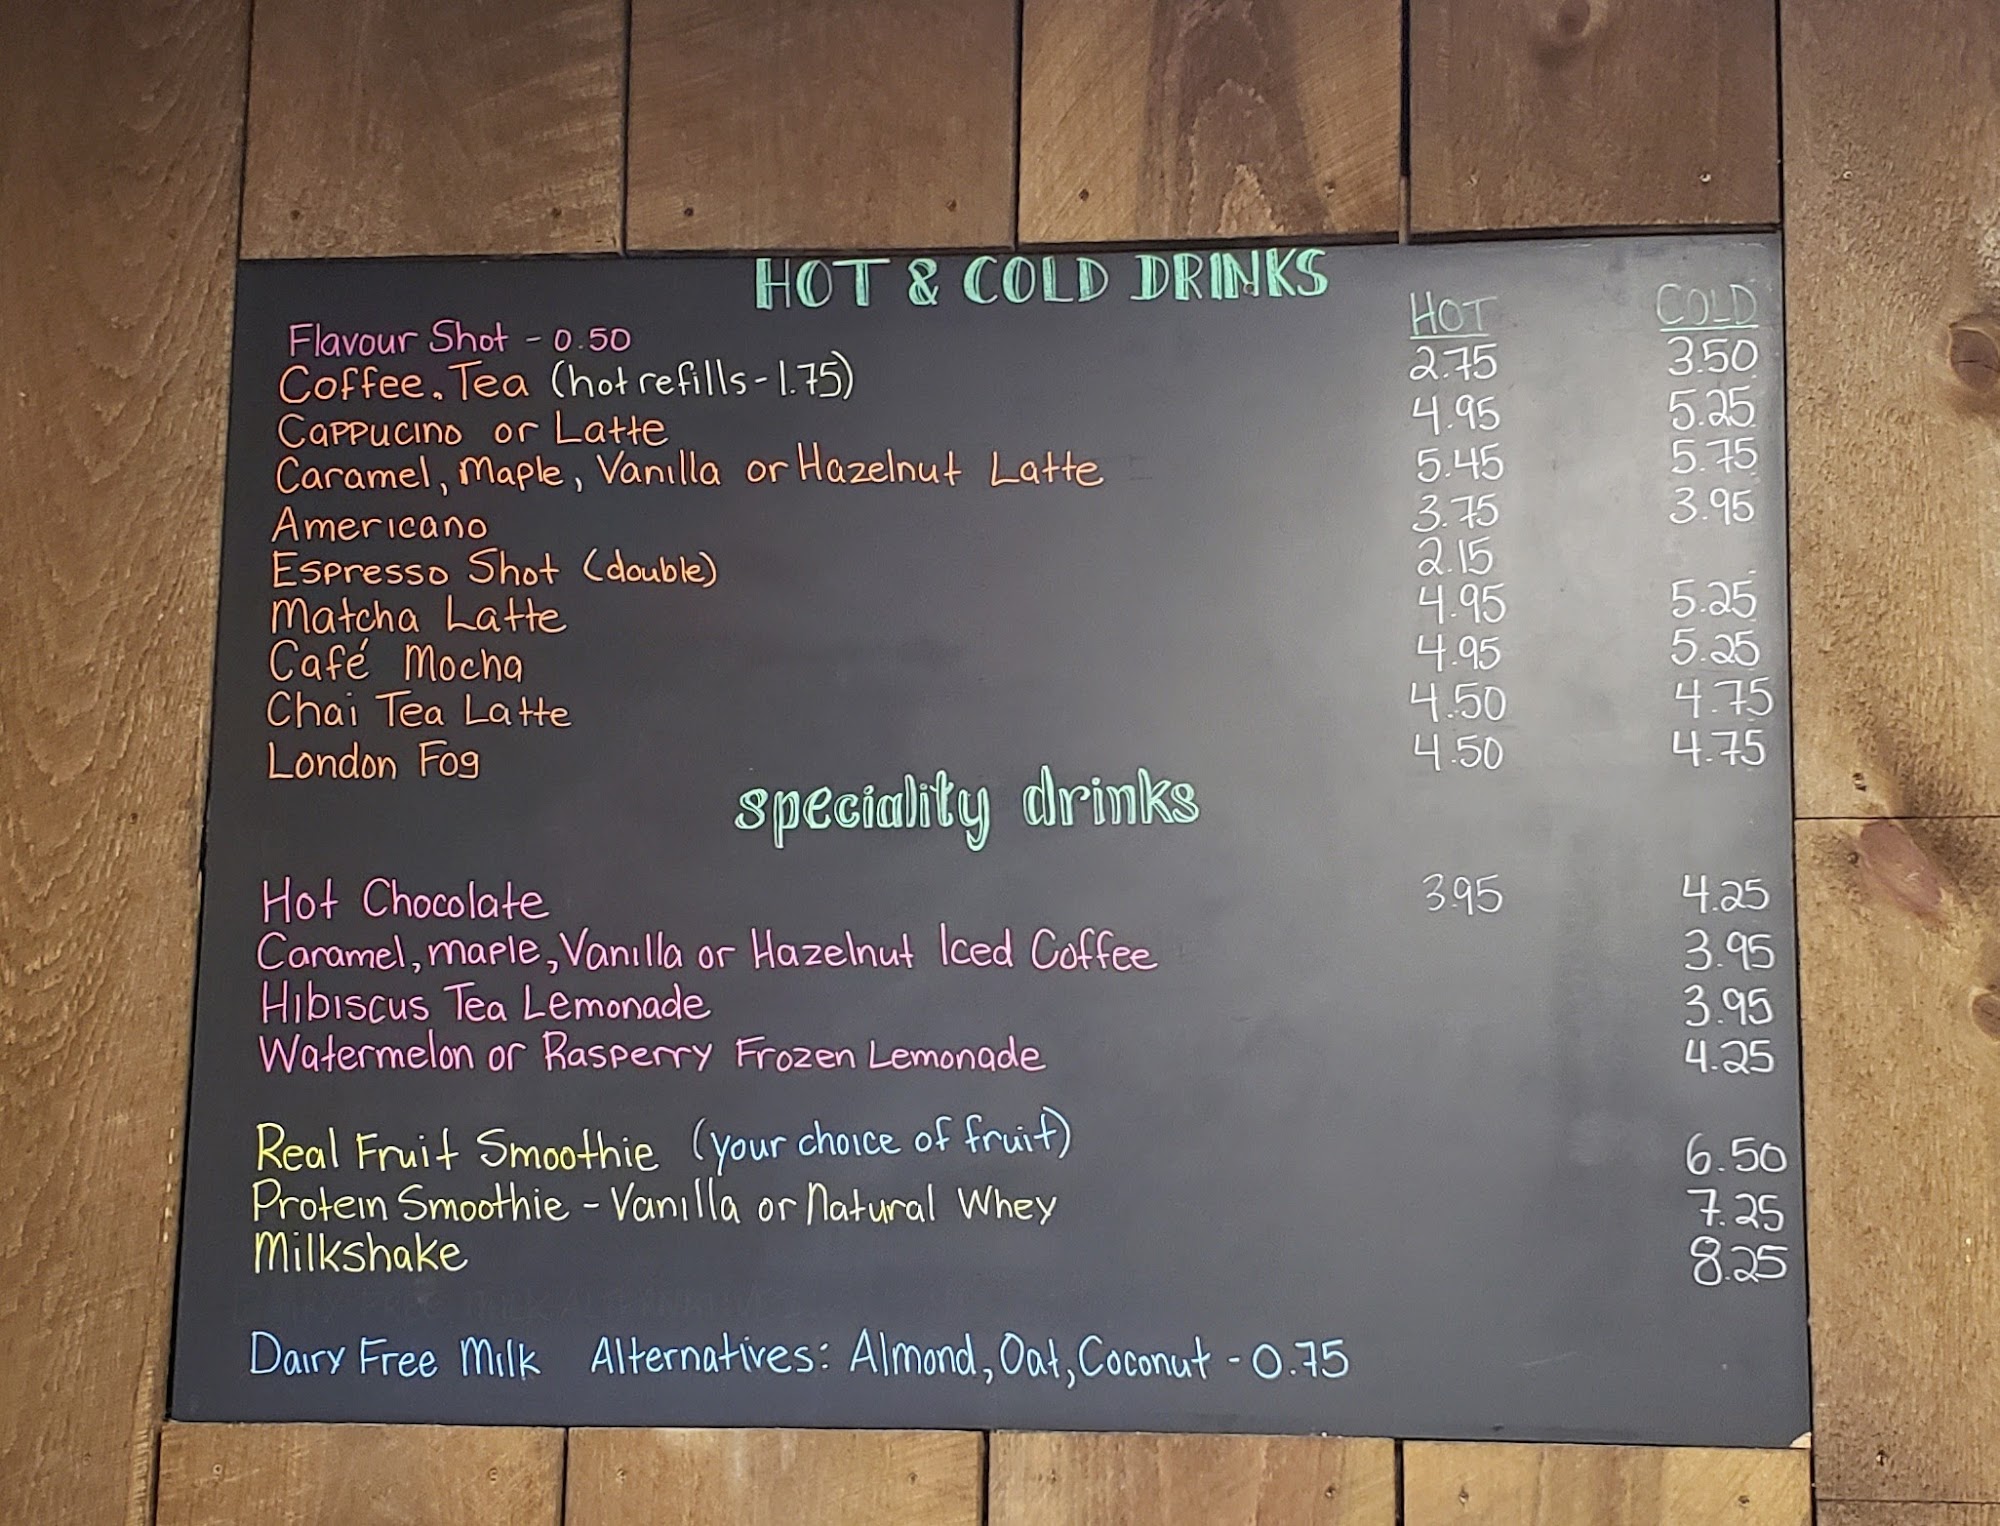 HOT & COLD DRINKS
HOT COLD
Flavour Shot - 0.50
Coffee, Tea (hot refills - 1.75) 2.75 3.50
Cappucino or Latte 4.95 5.25
Caramel, Maple, Vanilla or Hazelnut Latte 5.45 5.75
Americano 3.75 3.95
Espresso Shot (double) 2.15
Matcha Latte 4.95 5.25
Café Mocha 4.95 5.25
Chai Tea Latte 4.50 4.75
London Fog 4.50 4.75
speciality drinks
Hot Chocolate 3.95 4.25
Caramel, maple, Vanilla or Hazelnut Iced Coffee 3.95
Hibiscus Tea Lemonade 3.95
Watermelon or Rasperry Frozen Lemonade 4.25
Real Fruit Smoothie (your choice of fruit) 6.50
Protein Smoothie - Vanilla or Natural Whey 7.25
Milkshake 8.25
Dairy Free Milk Alternatives: Almond, Oat, Coconut - 0.75